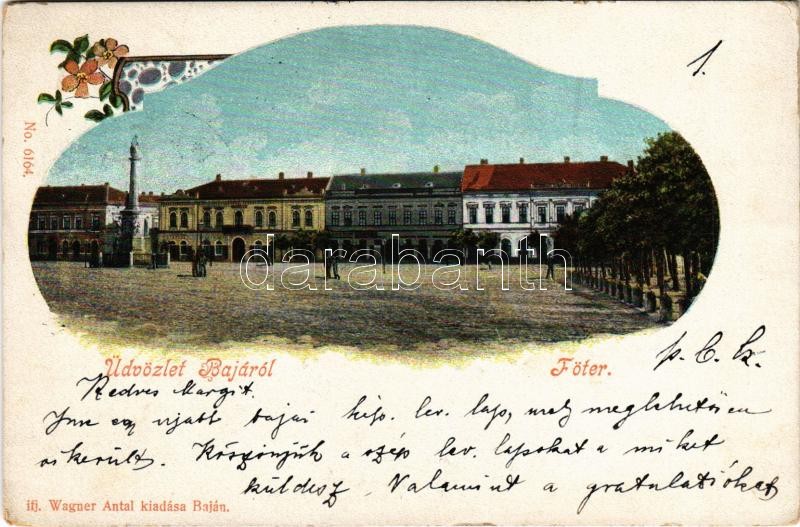 1.
No. 6164.
darabanth
Üdvözlet Bajáról
Főter.
p. C. Cz.
Kedves Margit.
Ime egy ujabb bajai képs. lev. lap, mely meglehetősen
sikerült. Köszönjük a szép lev. lapokat a miket
küldesz. Valamint a gratulatiókat
ifj. Wagner Antal kiadása Baján.